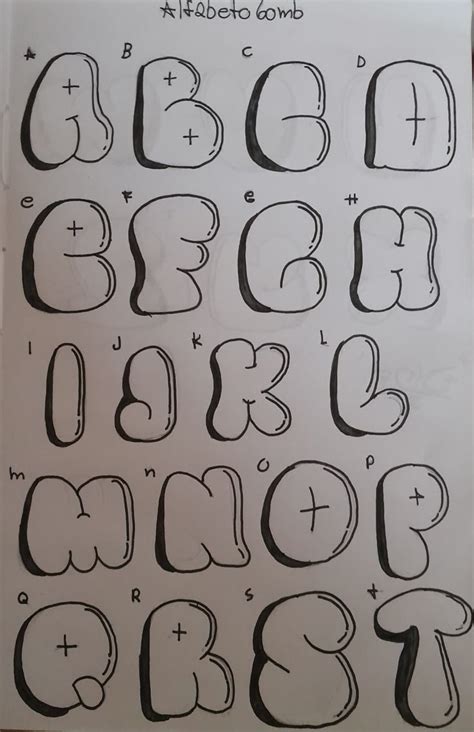 Alfabeto bomb
A B C D
A B C D
e F G H
e F G H
I J K L
I J K L
m n O P
M N O P
Q R S t
Q R S T